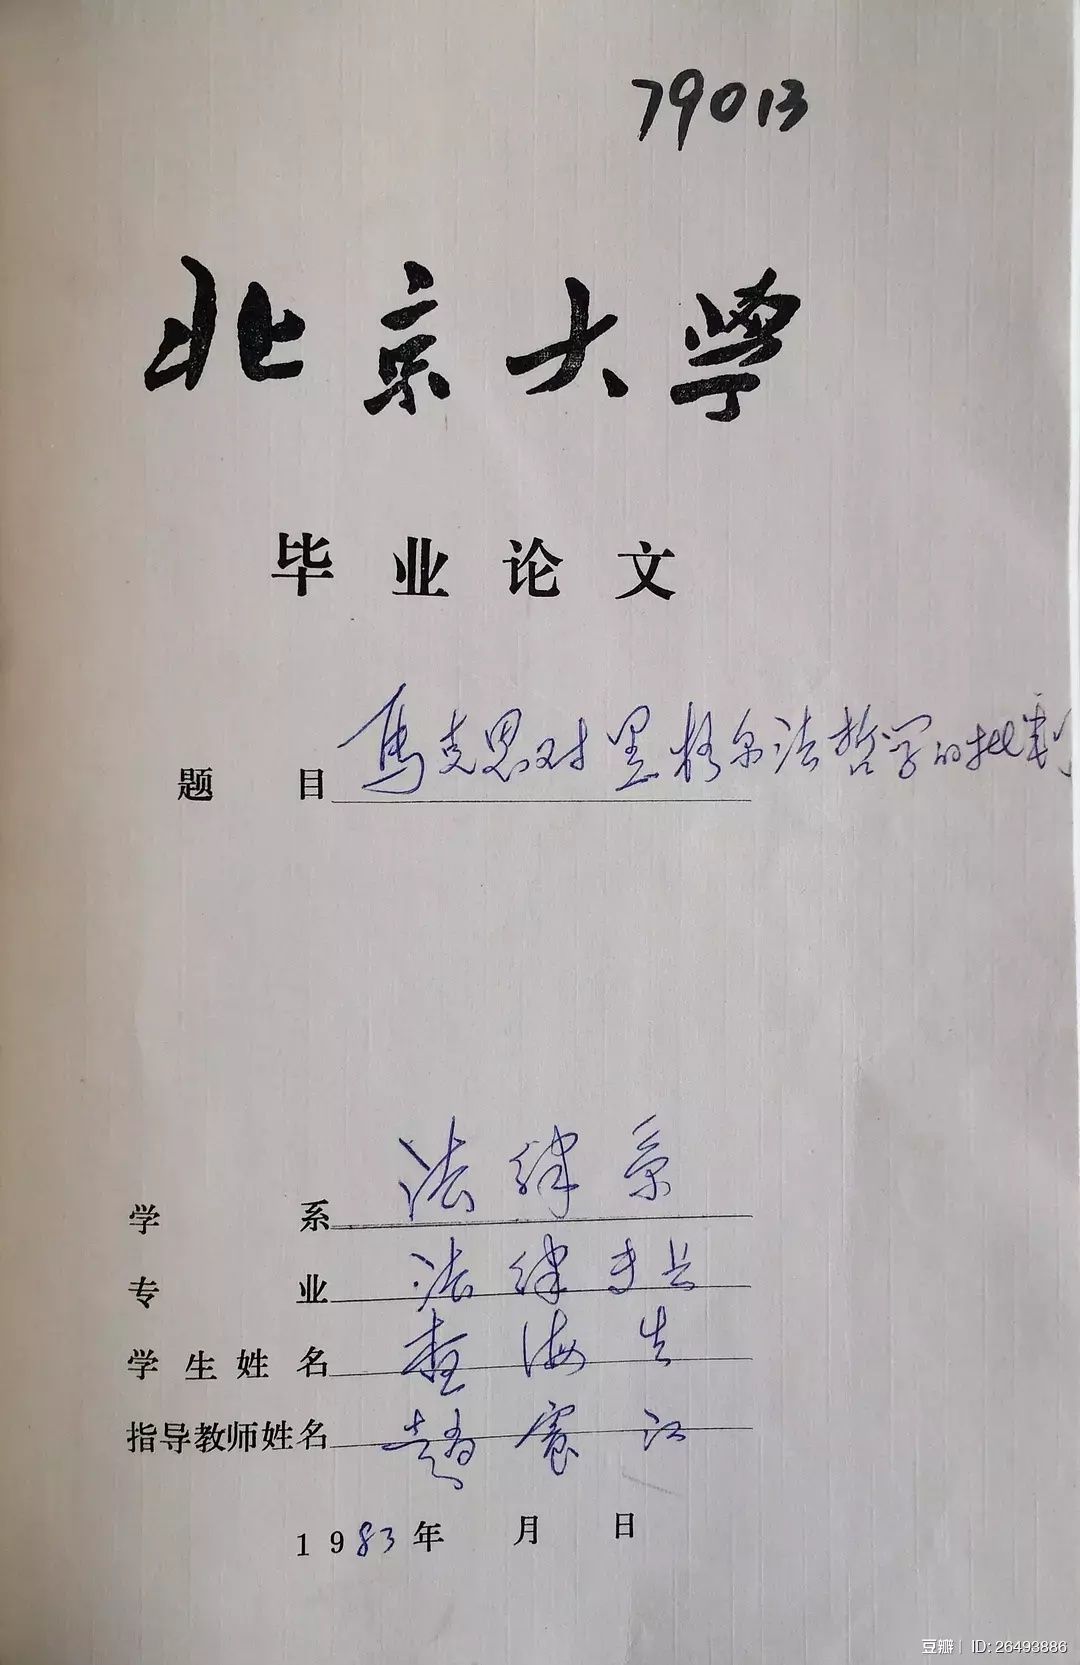 79013
北京大學
毕业论文
题目 馬克思对黑格尔法哲学的批判
学系 法律系
专业 法律专业
学生姓名 查海生
指导教师姓名 趙震江
1983年 月 日
豆瓣 | ID: 26493886